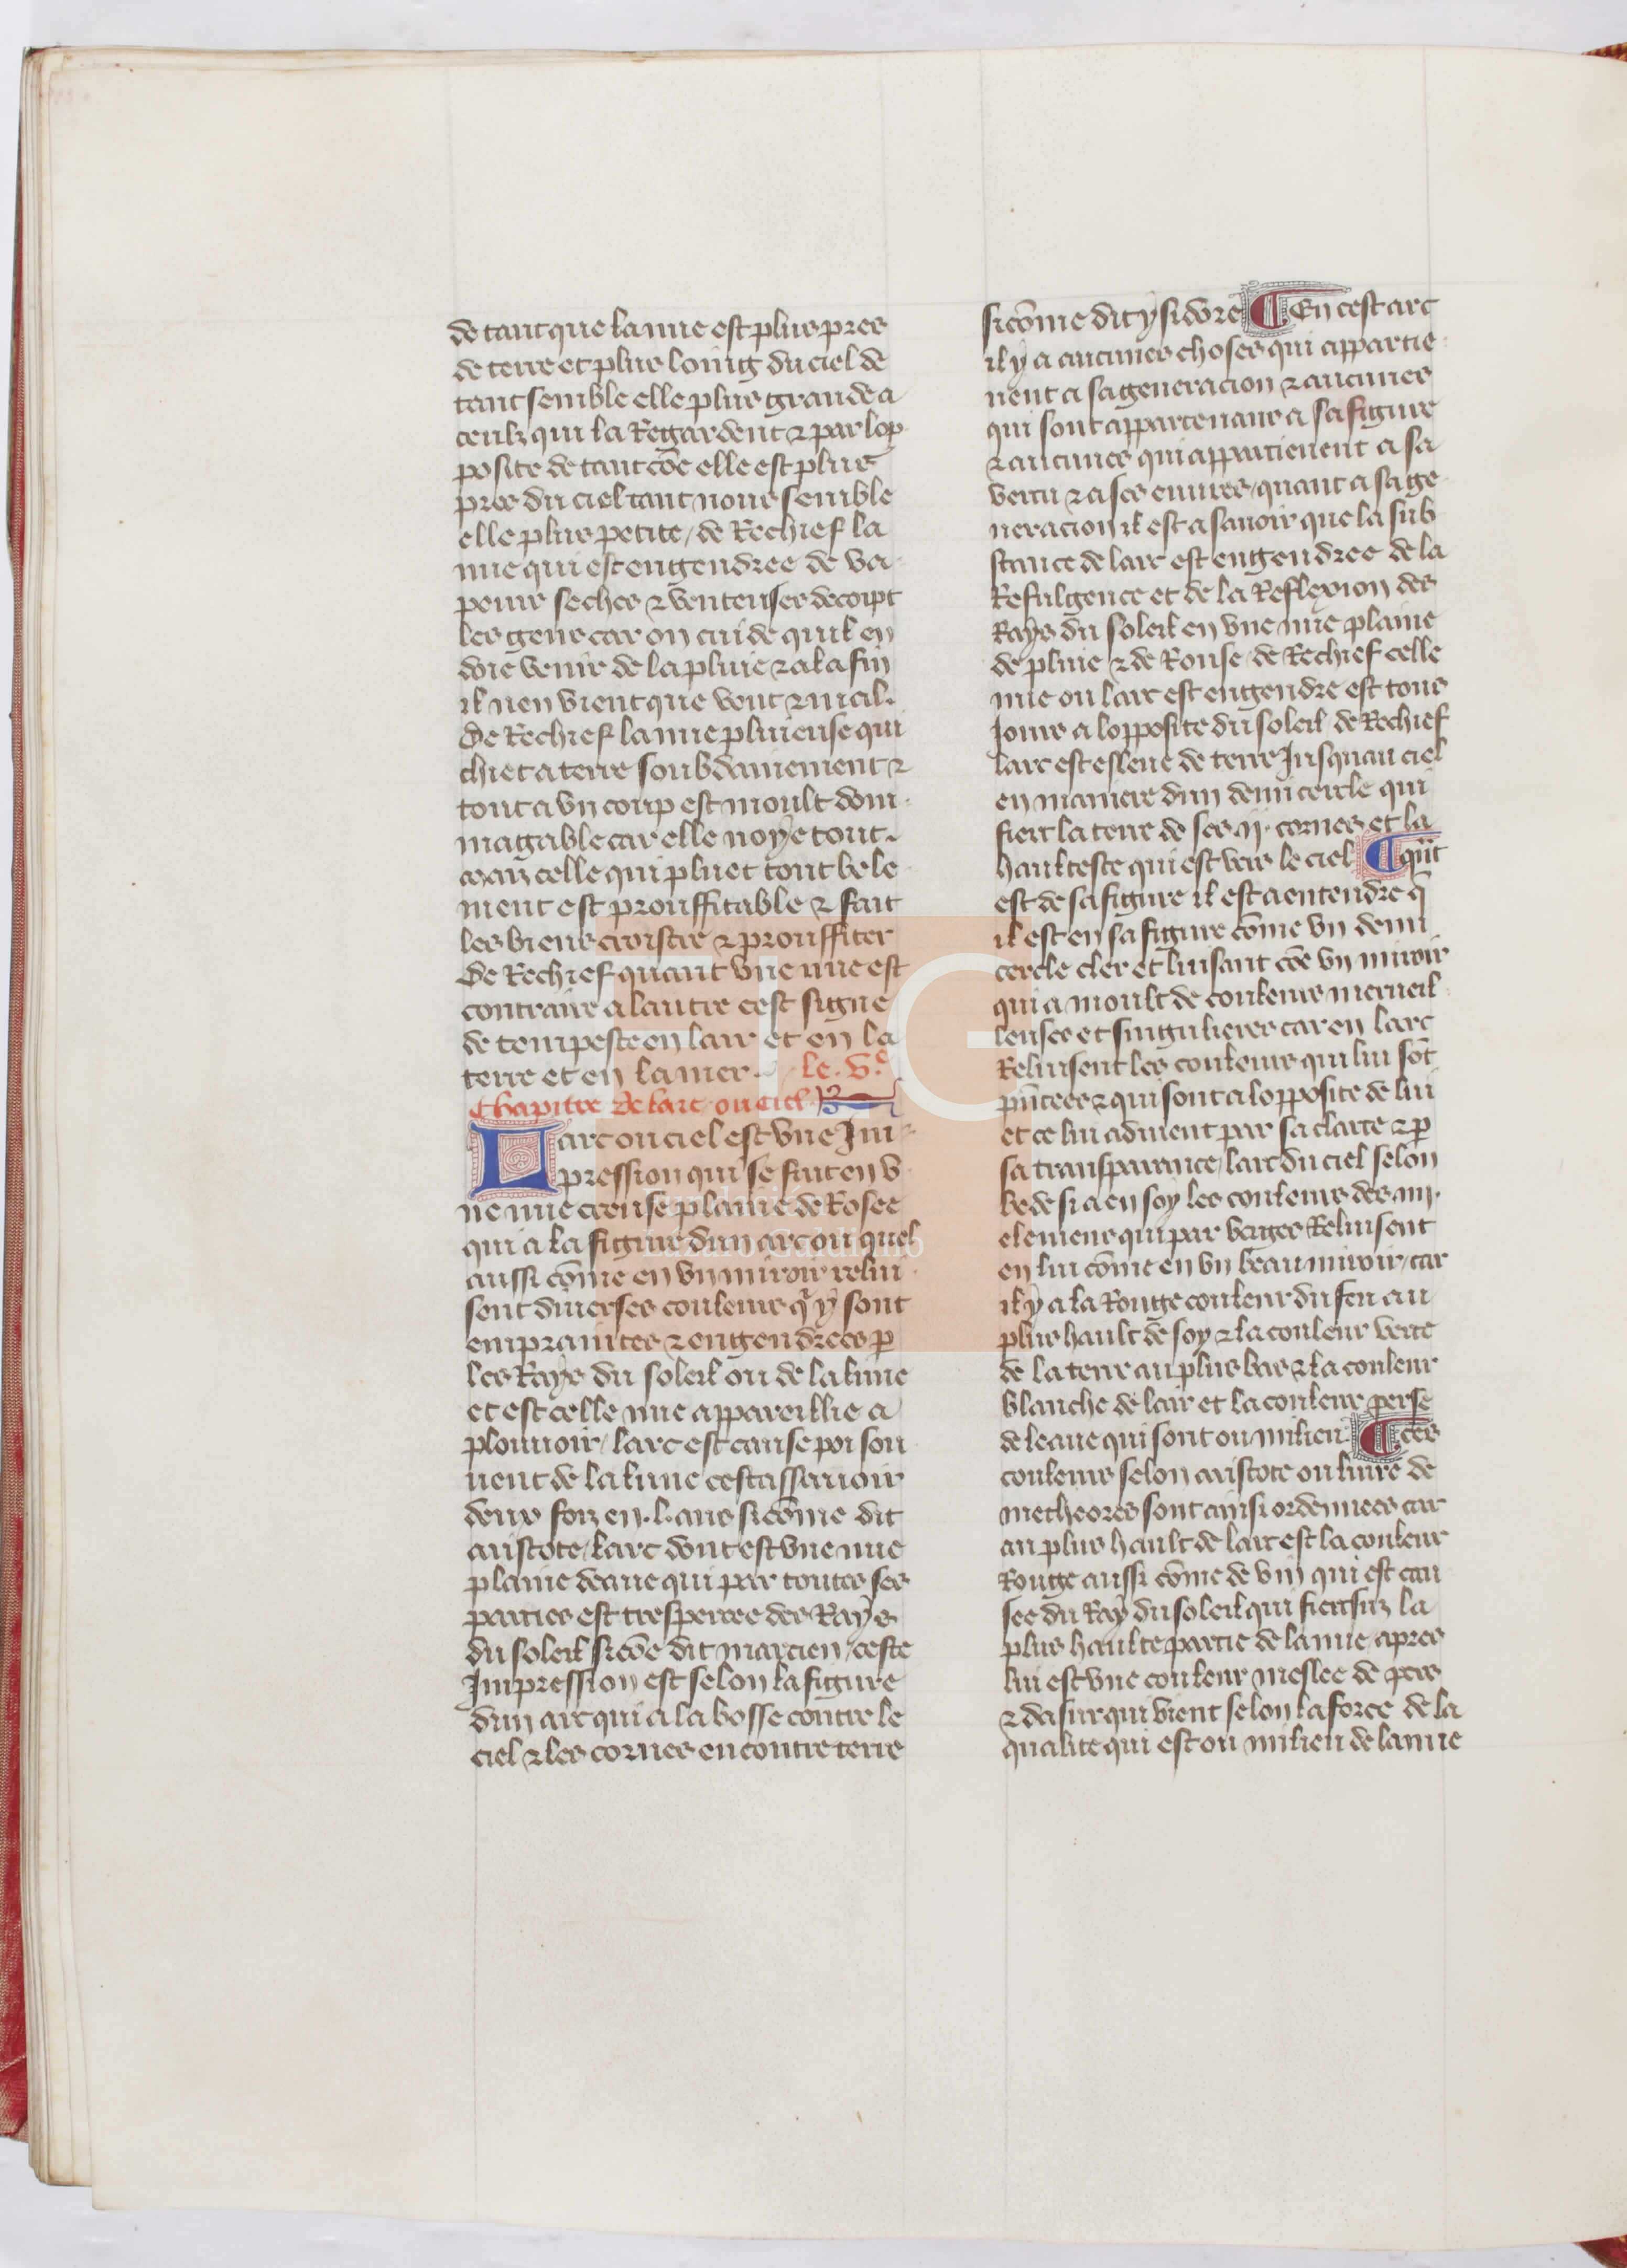 de tant que la nue est plus pres
de terre et plus loing du ciel de
tant semble elle plus grande a
ceulz qui la Regardent ⁊ par lop
posite de tant cōe elle est plus
pres du ciel tant nous semble
elle plus petite / de Rechief la
nue qui est engendree de va
peurs seches ⁊ venteuses decoipt
les gens car on cuide quil en
doie venir de la pluie ⁊ a la fin
il nen vient que vent ⁊ mal.
De Rechief la nue pluieuse qui
chiet a terre soubdainement ⁊
tout a vn coup est moult dom
magable car elle noye tout.
maiz celle qui pluet tout bele
ment est prouffitable ⁊ fait
les biens croistre ⁊ prouffiter
De Rechief quant vne nue est
contraire a lautre cest signe
de tempeste en lair et en la
terre et en la mer. le .ve
chapitre de larc ou ciel
Larc ou ciel est vne Im
pression qui se fait en v
ne nue creuse plaine de Rosee
qui a la figure dun arc ou quel
aussi cōme en vn miroir relui
sent diuerses couleurs q̄ y sont
empraintes ⁊ engendrees p̄
les Rays du soleil ou de la lune
et est celle nue appareillie a
plouuoir / larc est cause poi sou
uent de la lune cest assauoir
deux foiz en .l. ans sicōme dit
aristote / larc dont est vne nue
plaine deaue qui par toutes ses
parties est tresperree des Rays
du soleil sicōe dit marcien / ceste
Impression est selon la figure
dun arc qui a la bosse contre le
ciel ⁊ les cornes encontre terre
sicōme dit ysidore ¶ En cest arc
il y a aucunes choses qui appartie
nent a sa generacion ⁊ aucunes
qui sont appartenans a sa figure
⁊ aucunes qui appartienent a sa
vertu ⁊ a ses euures / quant a sa ge
neracion il est a sauoir que la sub
stance de larc est engendree de la
Refulgence et de la Reflexion des
Rays du soleil en vne nue plaine
de pluie ⁊ de Rousee / de Rechief celle
nue ou larc est engendre est tous
Jours a lopposite du soleil de Rechief
larc est esleue de terre Jusquau ciel
en maniere dun demi cercle qui
fiert la terre de ses .ij. cornes et la
haulteste qui est vers le ciel ¶ qūt
est de sa figure il est a entendre q̄
il est en sa figure cōme vn demi
cercle cler et luisant cōe vn miroir
qui a moult de couleurs merueil
leuses et singulieres car en larc
Reluisent les couleurs qui lui sōt
pn̄tees ⁊ qui sont a lopposite de lui
et ce lui aduient par sa clarte ⁊ p̄
sa transparance / larc du ciel selon
bede si a en soy les couleurs des .iiij.
elemens qui par verges Reluisent
en lui cōme en vn beau miroir / car
il y a la Rouge couleur du feu au
plus hault de soy ⁊ la couleur verte
de la terre au plus bas ⁊ la couleur
blanche de lair et la couleur perse
de leaue qui sont ou milieu ¶ Ces
couleurs selon aristote ou liure de
metheores sont ainsi ordennees car
au plus hault de larc est la couleur
Rouge aussi cōme de vin qui est cau
see du Ray du soleil qui fiert sur la
plus haulte partie de la nue / apres
lui est vne couleur meslee de pers
⁊ dasur qui vient selon la force de la
qualite qui est ou milieu de la nue